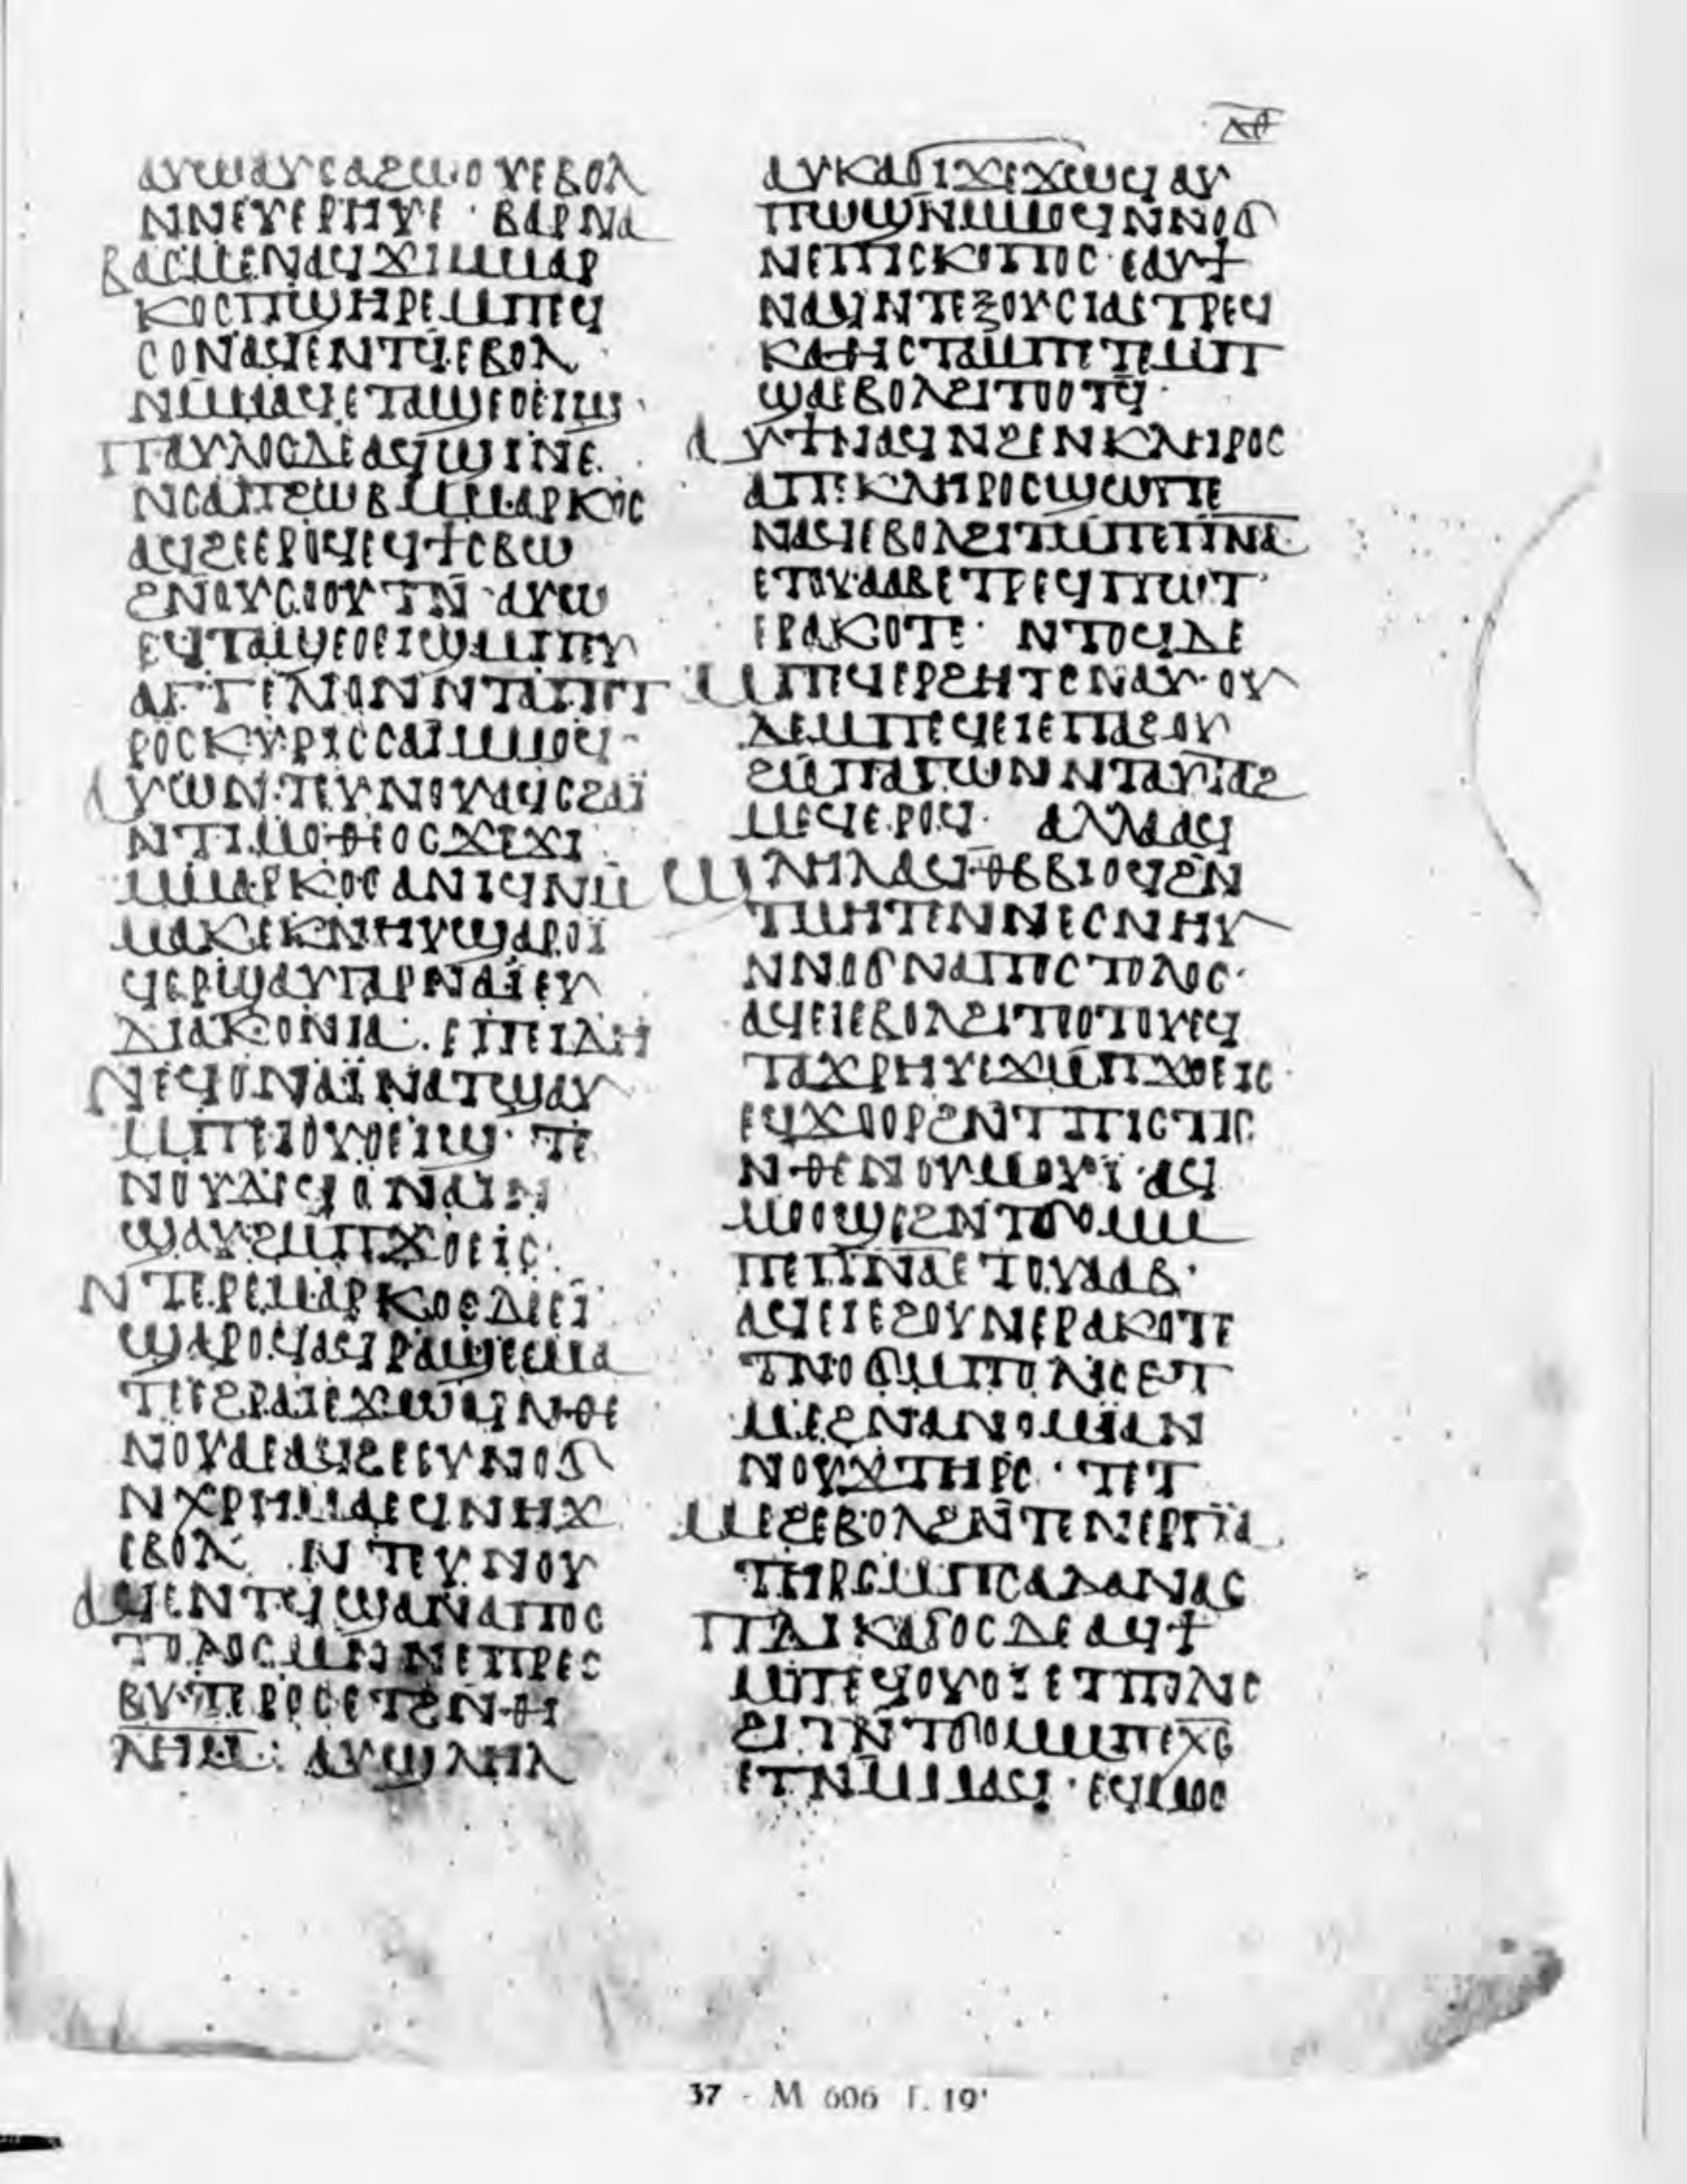 ⲗⲑ
ⲁⲩⲱⲁⲩⲥⲁϩⲱⲟⲩⲉⲃⲟⲗ
ⲛⲛⲉⲩⲉⲣⲏⲩⲉ · ⲃⲁⲣⲛⲁ
ⲃⲁⲥⲙⲉⲛⲁϥϫⲓⲙⲙⲁⲣ
ⲕⲟⲥⲡϣⲏⲣⲉⲙⲡⲉϥ
ⲥⲟⲛⲁϥⲉⲛⲧϥⲉⲃⲟⲗ
ⲛⲙⲙⲁϥⲉⲧⲁϣⲉⲟⲉⲓϣ ·
ⲡⲁⲩⲗⲟⲥⲇⲉⲁϥϣⲓⲛⲉ
ⲛⲥⲁⲡϩⲱⲃⲙⲙⲁⲣⲕⲟⲥ
ⲁϥϩⲉⲉⲣⲟϥⲉϥϯⲥⲃⲱ
ϩⲛⲟⲩⲥⲟⲟⲩⲧⲛ̄ · ⲁⲩⲱ
ⲉϥⲧⲁϣⲉⲟⲉⲓϣⲙⲡⲉⲩ
ⲁⲅⲅⲉⲗⲓⲟⲛⲛⲧⲁⲡⲉⲧ
ⲣⲟⲥⲕⲩⲣⲓⲥⲥⲁⲓⲙⲙⲟϥ
ⲁⲩⲱⲛ·ⲧⲉⲩⲛⲟⲩⲁϥⲥϩⲁⲓ̈
ⲛⲧⲓⲙⲟⲑⲓⲟⲥϫⲉϫⲓ
ⲙⲙⲁⲣⲕⲟⲥⲁⲛⲓϥⲛⲙ̄
ⲙⲁⲕⲉⲕⲛⲏⲩϣⲁⲣⲟⲓ̈
ϥⲉⲣϣⲁⲩⲅⲁⲣⲛⲁⲓ̈ⲉⲩ
ⲇⲓⲁⲕⲟⲛⲓⲁ · ⲉⲡⲉⲓⲇⲏ
ⲛⲉϥⲟⲛⲁⲓ̈ⲛⲁⲧϣⲁⲩ
ⲙⲡⲉⲓⲟⲩⲟⲉⲓϣ · ⲧⲉ
ⲛⲟⲩⲇⲉϥⲟⲛⲁⲓ̈ⲛ
ϣⲁⲩϩⲙⲡϫⲟⲉⲓⲥ ·
ⲛⲧⲉⲣⲉⲙⲁⲣⲕⲟⲥⲇⲉⲉⲓ
ϣⲁⲣⲟϥⲁϥⲣⲁϣⲉⲉⲙⲁ
ⲧⲉⲉϩⲣⲁⲓⲉϫⲱϥⲛⲑⲉ
ⲛⲟⲩⲁⲉⲁϥϩⲉⲉⲩⲛⲟϭ
ⲛⲭⲣⲏⲙⲁⲉϥⲛⲏϫ
ⲉⲃⲟⲗ ⲛⲧⲉⲩⲛⲟⲩ
ⲁϥⲉⲛⲧϥϣⲁⲛⲁⲡⲟⲥ
ⲧⲟⲗⲟⲥⲙⲛⲛⲉⲡⲣⲉⲥ
ⲃⲩⲧⲉⲣⲟⲥⲉⲧϩⲛ̄ⲑⲓ
ⲗⲏⲙ : ⲁⲩϣⲗⲏⲗ
ⲁⲩⲕⲁϭⲓϫⲉϫⲱϥⲁⲩ
ⲡⲱϣⲛⲙⲙⲟϥⲛⲛⲟϭ
ⲛⲉⲡⲓⲥⲕⲟⲡⲟⲥ·ⲉⲁⲩϯ
ⲛⲁϥⲛⲧⲉⲝⲟⲩⲥⲓⲁⲉⲧⲣⲉϥ
ⲕⲁⲑⲓⲥⲧⲁⲙⲡⲉⲧⲉⲙⲡ
ϣⲁⲉⲃⲟⲗϩⲓⲧⲟⲟⲧϥ ·
ⲁⲩϯⲛⲁϥⲛϩⲉⲛⲕⲗⲏⲣⲟⲥ
ⲁⲡⲉⲕⲗⲏⲣⲟⲥϣⲱⲡⲉ
ⲛⲁϥⲉⲃⲟⲗϩⲓⲧⲙⲡⲉⲡⲛ̄ⲁ̄
ⲉⲧⲟⲩⲁⲁⲃⲉⲧⲣⲉϥⲡⲱⲧ
ⲉⲣⲁⲕⲟⲧⲉ · ⲛⲧⲟϥⲇⲉ
ⲙⲡϥⲉⲣϩⲏⲧⲥⲛⲁⲩ·ⲟⲩ
ⲇⲉⲙⲡⲉϥⲉⲓⲉⲡⲁϩⲟⲩ
ϩⲙ̄ⲡⲁⲅⲱⲛⲛⲧⲁⲩⲧⲁϩ
ⲙⲉϥⲉⲣⲟϥ · ⲁⲗⲗⲁⲁϥ
ϣⲗⲏⲗⲁϥⲑⲃⲃⲓⲟϥϩⲛ
ⲧⲙⲏⲧⲉⲛⲛⲉⲥⲛⲏⲩ
ⲛⲛⲟϭⲛⲁⲡⲟⲥⲧⲟⲗⲟⲥ·
ⲁϥⲉⲓⲉⲃⲟⲗϩⲓⲧⲟⲟⲧⲟⲩⲉϥ
ⲧⲁϫⲣⲏⲩⲉϫⲙ̄ⲡϫⲟⲉⲓⲥ
ⲉϥϫⲟⲟⲣϩⲛⲧⲡⲓⲥⲧⲓⲥ
ⲛⲑⲉⲛⲟⲩⲙⲟⲩⲓ̈·ⲁϥ
ⲙⲟⲟϣⲉϩⲛⲧϭⲟⲙⲙ
ⲡⲉⲡⲛ̄ⲁ̄ⲉⲧⲟⲩⲁⲁⲃ·
ⲁϥⲉⲓⲉϩⲟⲩⲛⲉⲣⲁⲕⲟⲧⲉ
ⲧⲛⲟϭⲙⲡⲟⲗⲓⲥⲉⲧ
ⲙⲉϩⲛⲁⲛⲟⲙⲓⲁⲛ
ⲛⲟⲩϫⲧⲏⲣⲥ · ⲧⲉⲧ
ⲙⲉϩⲉⲃⲟⲗϩⲛ̄ⲧⲉⲛⲉⲣⲅⲓ̈ⲁ
ⲧⲏⲣⲥⲙⲡⲥⲁⲇⲁⲛⲁⲥ
ⲡⲇⲓⲕⲁⲓⲟⲥⲇⲉⲁϥϯ
ⲙⲡⲉϥⲟⲩⲟⲓⲉⲧⲡⲟⲗⲓⲥ
ϩⲓⲧⲛ̄ⲧϭⲟⲙⲙⲡⲉⲭ̄ⲥ̄
ⲉⲧⲛⲙⲙⲁϥ · ⲉϥⲙⲟⲟ
37 - M 606 F. 19ʳ